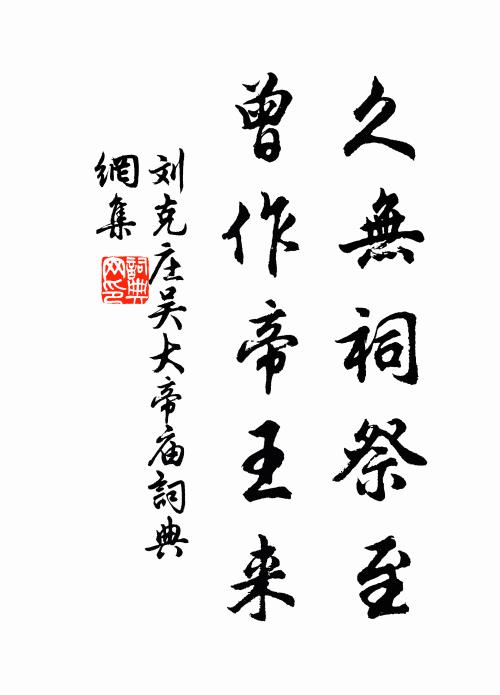 久無祠祭至
曾作帝王来
刘克庄吴大帝庙詞典
網集
詞典
网印